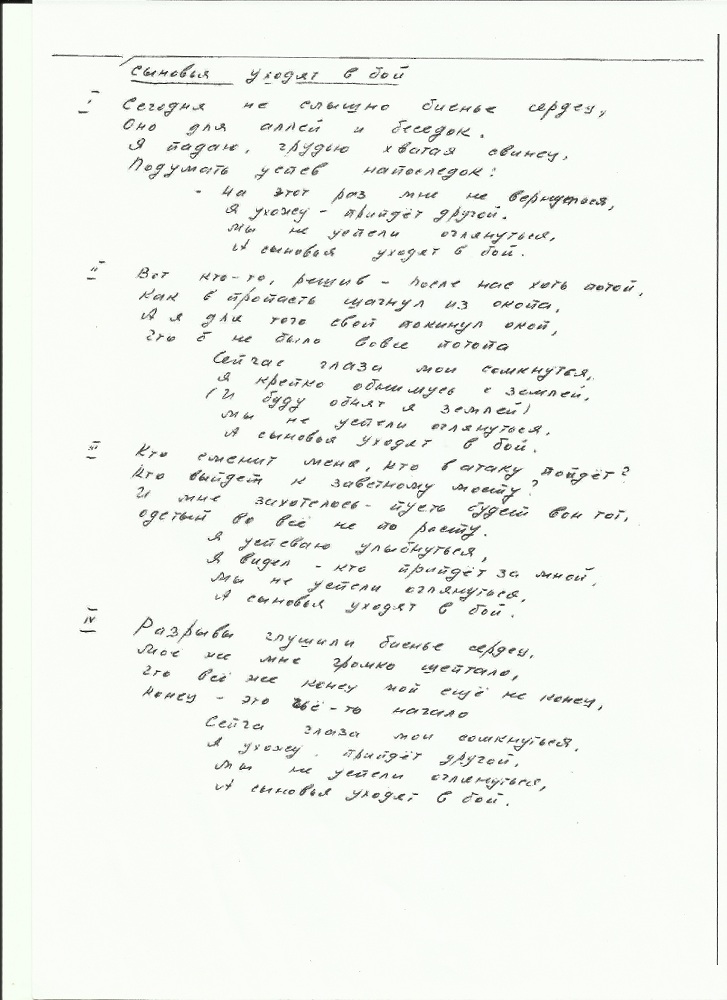 Сыновья уходят в бой
I
Сегодня не слышно биенье сердец,
Оно для аллей и беседок.
Я падаю, грудью хватая свинец,
Подумать успев напоследок:
- На этот раз мне не вернуться,
Я ухожу - прийдёт другой.
Мы не успели оглянуться,
А сыновья уходят в бой.
II
Вот кто-то, решив - после нас хоть потоп,
Как в пропасть шагнул из окопа,
А я для того свой покинул окоп,
Что б не было вовсе потопа
Сейчас глаза мои сомкнуться,
Я крепко обнимусь с землей.
(И буду обнят я землей)
Мы не успели оглянуться,
А сыновья уходят в бой.
III
Кто сменит меня, кто в атаку пойдёт?
Кто выйдет к заветному мосту?
И мне захотелось - пусть будет вон тот,
одетый во всё не по росту.
Я успеваю улыбнуться,
Я видел - кто прийдёт за мной.
Мы не успели оглянуться,
А сыновья уходят в бой.
IV
Разрывы глушили биенье сердец,
Мое же мне громко шептало,
Что всё же конец мой ещё не конец,
Конец - это чьё-то начало
Сейча глаза мои сомкнуться.
Я ухожу - прийдёт другой.
Мы не успели оглянуться,
А сыновья уходят в бой.